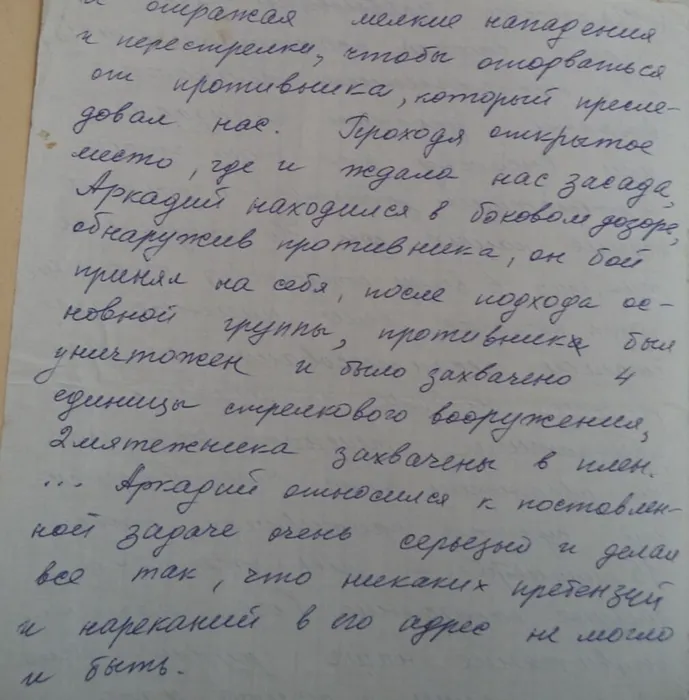 и отражая мелкие нападения
и перестрелки, чтобы оторваться
от противника, который пресле-
довал нас. Проходя открытое
место, где и ждала нас засада,
Аркадий находился в боковом дозоре,
обнаружив противника, он бой
принял на себя, после подхода ос-
новной группы, противник был
уничтожен и было захвачено 4
единицы стрелкового вооружения,
2 мятежника захвачены в плен.
... Аркадий относился к поставлен-
ной задаче очень серьезно и делал
все так, что никаких претензий
и нареканий в его адрес не могло
и быть.